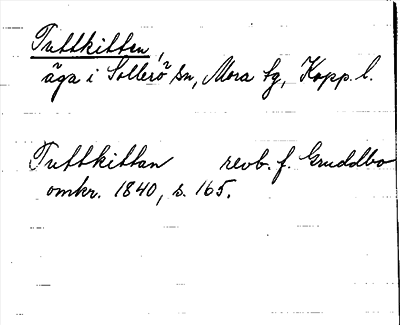 Tuttkitten,
äga i Sollerö sn, Mora tg, Kopp. l.
Tuttkittan revb. f. Gruddbo
omkr. 1840, s. 165.